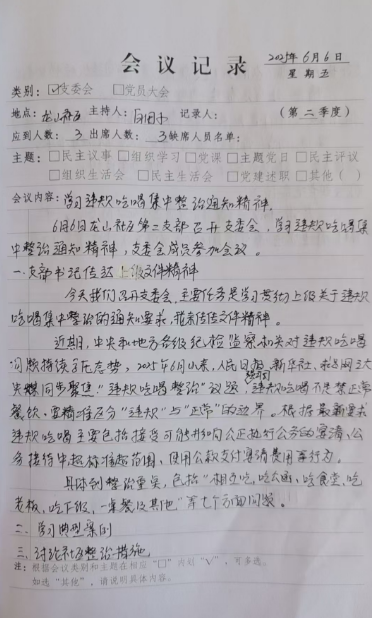 会议记录
2025年6月6日
星期五
类别：☑支委会 □党员大会
地点：龙山社区 主持人： 记录人： （第二季度）
应到人数：3 出席人数：3 缺席人员名单：
主题：□民主议事 □组织学习 □党课 □主题党日 □民主评议
□组织生活会 □民主生活会 □党建述职 □其他（ ）
会议内容：学习违规吃喝集中整治通知精神。
6月6日龙山社区第二支部召开支委会，学习违规吃喝集
中整治通知精神，支委会成员参加会议。
一.支部书记传达上级文件精神
今天我们召开支委会，主要任务是学习贯彻上级关于违规
吃喝集中整治的通知要求，我来传达文件精神。
近期，中央和地方各级纪检监察机关对违规吃喝
问题持续高压态势，2025年6月以来，人民日报、新华社、求是网三大
央媒同步聚焦"违规吃喝整治"议题，违规吃喝不是禁正常
餐饮，要精准区分"违规"与"正常"的边界。根据最新要求
违规吃喝主要包括接受可能影响公正执行公务的宴请、公
务接待中超标准超范围、使用公款支付宴请费用等行为。
具体到整治重点，包括"相互吃、吃公函、吃食堂、吃
老板、吃下级、一桌餐及其他"等七个方面问题。
二、学习典型案例
三、讨论社区整治措施
注：根据会议类别和主题在相应"□"内划"√"，可多选。
如选"其他"，请说明具体内容。